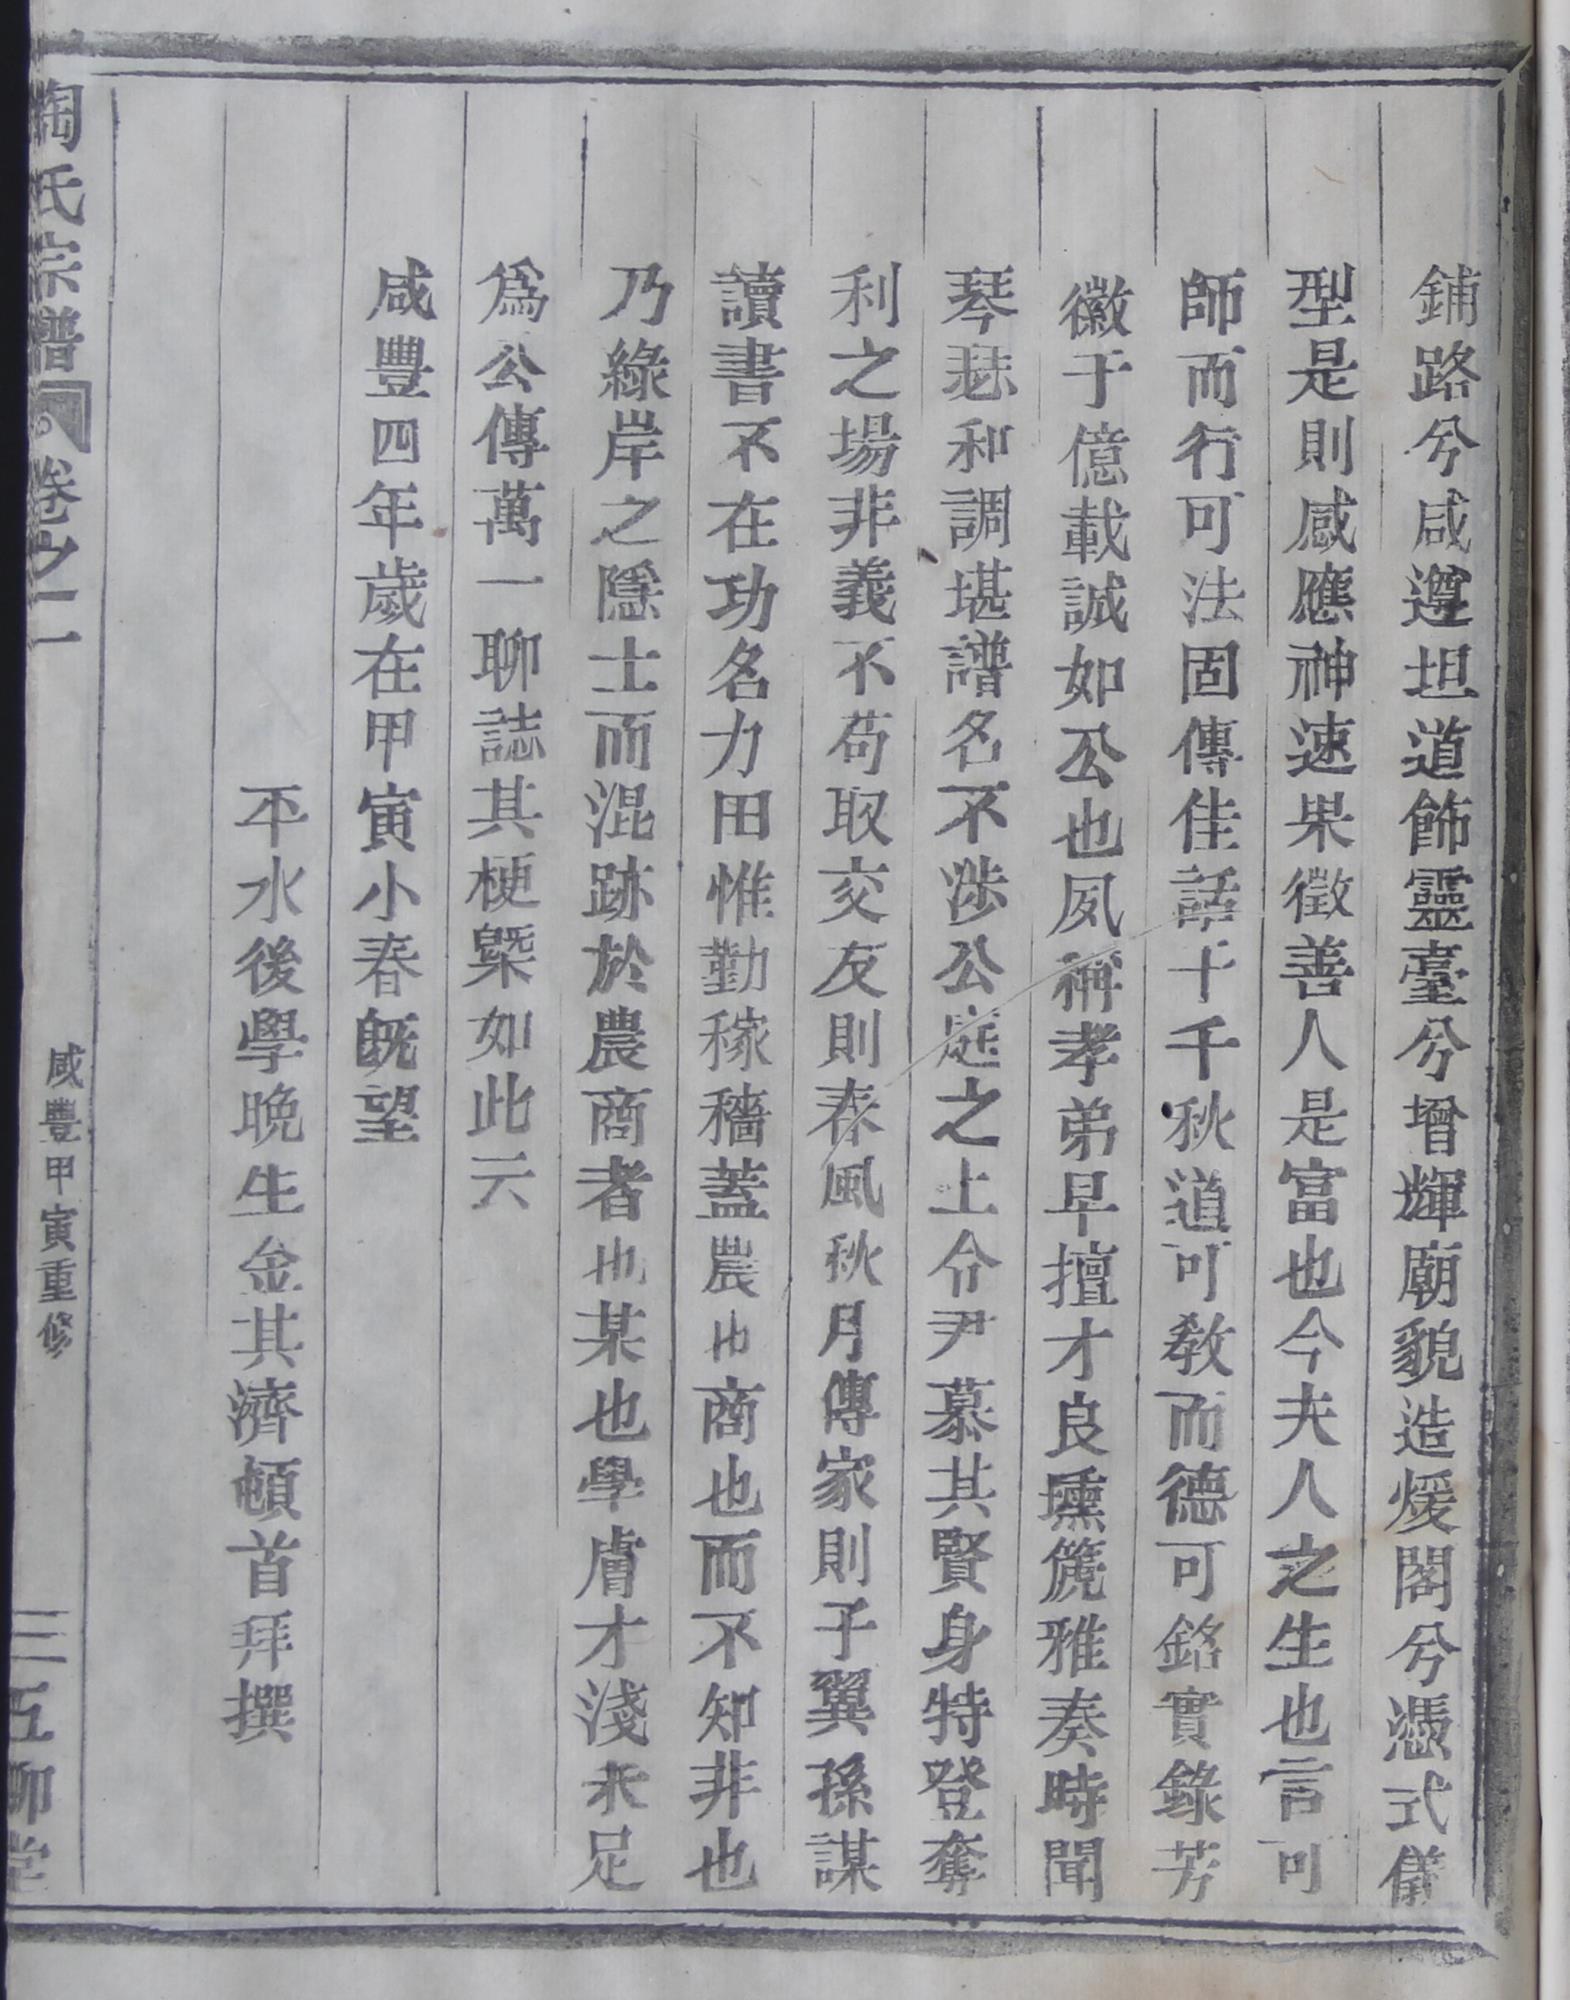 鋪路兮咸遵坦道飾靈臺兮增輝廟貌造煖閣兮憑式儀
型是則感應神速果徵善人是富也今夫人之生也言可
師而行可法固傳佳話十千秋道可敎而德可銘實錄芳
徽于億載誠如公也夙稱孝弟早擅才良壎篪雅奏時聞
琴瑟和調堪譜名不涉公庭之上令尹慕其賢身特登奪
利之場非義不苟取交友則春風秋月傳家則子翼孫謀
讀書不在功名力田惟勤稼穡蓋農也商也而不知非也
乃綠岸之隱士而混跡於農商者也某也學膚才淺未足
爲公傳萬一聊誌其梗槩如此云
咸豐四年歲在甲寅小春旣望
平水後學晚生金其濟頓首拜撰
陶氏宗譜 卷之二 咸豐甲寅重修 三 五柳堂